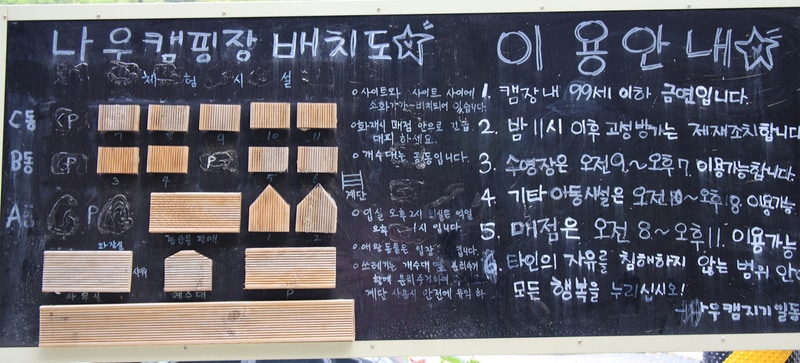 나우캠핑장 배치도
체 험 시 설
C동 P 7 8 9 10 11
B동 P 3 4 P 5 6
A동 P 1 2
계단
화장실
샤워
사무실 개수대 P
P
o 사이트와 사이트 사이에
소화기가 비치되어 있습니다.
o 화재시 매점 안으로 긴급
대피 하세요.
o 개수대는 공동입니다.
o 입실 오후 2시 퇴실은 익일
1시 입니다.
o 애완동물은 입장
o 쓰레기는 개수대 옆 분리수거
함에 분리수거하여
계단 사용시 안전에 유의 하
이용안내
1. 캠장내 99세 이하 금연입니다.
2. 밤 11시 이후 고성방가는 제재조치합니다
3. 수영장은 오전 9.~오후 7. 이용가능합니다.
4. 기타 이동시설은 오전 10~오후 8. 이용가능
5. 매점은 오전 8~오후 11. 이용가능
6. 타인의 자유를 침해하지 않는 범위 안에
모든 행복을 누리십시오!
나우캠지기 일동